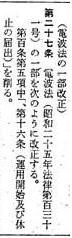 （電波法の一部改正）
第二十七条　電波法（昭和二十五年法律第百三十
一号）の一部を次のように改正する。
第百条第五項中「、第十六条（運用開始及び休
止の届出）」を削る。